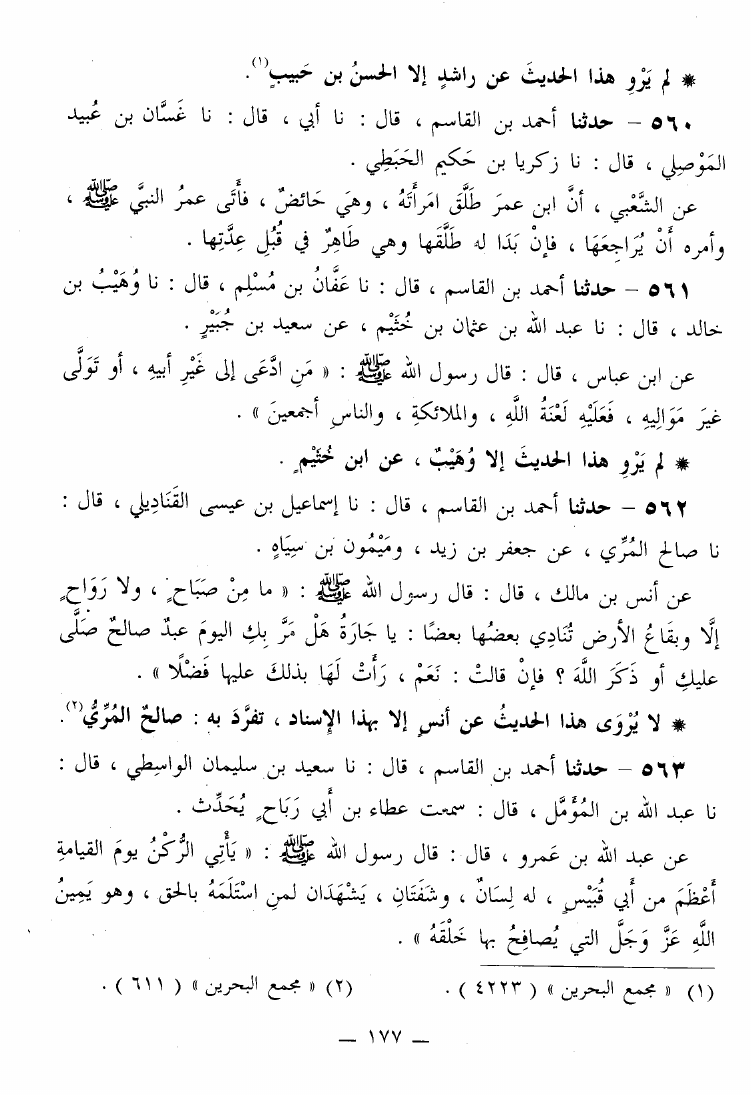 * لم يَرْوِ هذا الحديثَ عن راشدٍ إلا الحسنُ بن حَبيبٍ(١).
٥٦٠ – حدثنا أحمد بن القاسم ، قال : نا أبي ، قال : نا غَسَّان بن عُبيد
المَوْصِلي ، قال : نا زكريا بن حَكيم الحَبَطِي .
عن الشَّعْبي ، أنَّ ابن عمرَ طَلَّقَ امرَأتَهُ ، وهيَ حَائضٌ ، فأَتَى عمرُ النبيَّ ﷺ ،
وأمره أنْ يُرَاجِعَهَا ، فإنْ بَدَا له طَلَّقَها وهي طَاهِرٌ في قُبُلِ عِدَّتِها .
٥٦١ – حدثنا أحمد بن القاسم ، قال : نا عَفَّانُ بن مُسْلِم ، قال : نا وُهَيْبُ بن
خالد ، قال : نا عبد الله بن عثمان بن خُثَيْم ، عن سعيد بن جُبَيْرٍ .
عن ابن عباس ، قال : قال رسول الله ﷺ : « مَنِ ادَّعَى إلى غَيْرِ أبيهِ ، أو تَوَلَّى
غيرَ مَوَاليهِ ، فَعَلَيْهِ لَعْنَةُ اللَّهِ ، والملائكةِ ، والناسِ أجمعينَ » .
* لم يَرْوِ هذا الحديثَ إلا وُهَيْبٌ ، عن ابن خُثَيْمٍ .
٥٦٢ – حدثنا أحمد بن القاسم ، قال : نا إسماعيل بن عيسى القَنَادِيلي ، قال :
نا صالح المُرِّي ، عن جعفر بن زيد ، ومَيْمُون بن سِيَاهٍ .
عن أنس بن مالك ، قال : قال رسول الله ﷺ : « ما مِنْ صَبَاحٍ ، ولا رَوَاحٍ
إلَّا وبِقَاعُ الأرضِ تُنَادِي بعضُها بعضًا : يا جَارَةُ هَلْ مَرَّ بِكِ اليومَ عبدٌ صالحٌ صَلَّى
عليكِ أو ذَكَرَ اللَّهَ ؟ فإنْ قالتْ : نَعَمْ ، رَأَتْ لَهَا بذلكَ عليها فَضْلًا » .
* لا يُرْوَى هذا الحديثُ عن أنسٍ إلا بهذا الإسناد ، تفرَّدَ به : صالحٌ المُرِّيُّ(٢).
٥٦٣ – حدثنا أحمد بن القاسم ، قال : نا سعيد بن سليمان الواسِطي ، قال :
نا عبد الله بن المُؤَمَّل ، قال : سمعت عطاء بن أبي رَبَاحٍ يُحَدِّث .
عن عبد الله بن عَمرو ، قال : قال رسول الله ﷺ : « يَأْتِي الرُّكْنُ يومَ القيامةِ
أَعْظَمَ من أبي قُبَيْسٍ ، له لِسَانٌ ، وشَفَتَانِ ، يَشْهَدَان لمنِ اسْتَلَمَهُ بالحق ، وهو يَمِينُ
اللَّهِ عَزَّ وَجَلَّ التي يُصافِحُ بها خَلْقَهُ » .
(١) « مجمع البحرين » ( ٤٢٢٣ ) .
(٢) « مجمع البحرين » ( ٦١١ ) .
– ١٧٧ –